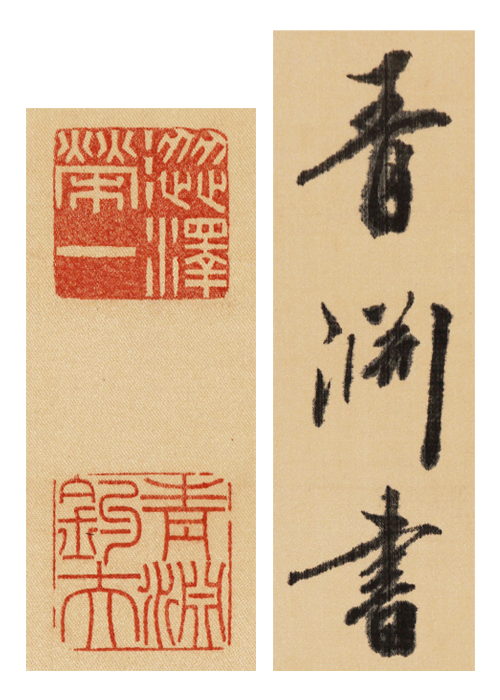 青淵書
澁澤
榮一
青淵
釣夫